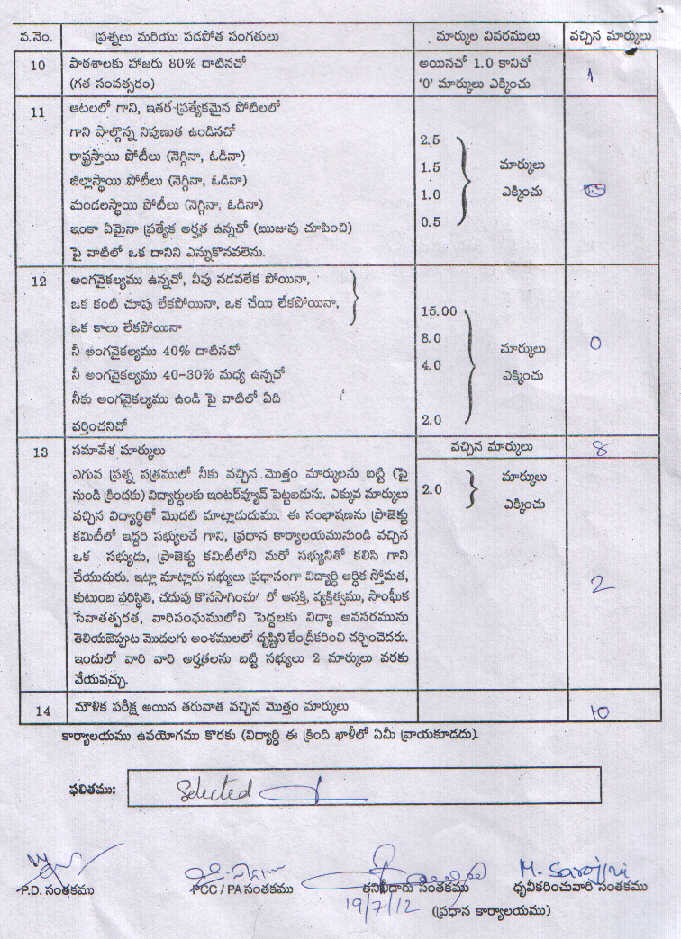 వ.నెం. ప్రశ్నలు మరియు పడపోత పంగతులు మార్కుల వివరములు వచ్చిన మార్కులు
10 పాఠశాలకు హాజరు 80% దాటినచో అయినచో 1.0 కానిచో
(గత సంవత్సరం) '0' మార్కులు ఎక్కించు 1
11 ఆటలలో గాని, ఇతర ప్రత్యేకమైన పోటీలలో
గాని పాల్గొన్న నిపుణుత ఉండినచో 2.5
రాష్ట్రస్థాయి పోటీలు (నెగ్గినా, ఓడినా) 1.5 మార్కులు
జిల్లాస్థాయి పోటీలు (నెగ్గినా, ఓడినా) 1.0 ఎక్కించు
మండలస్థాయి పోటీలు (నెగ్గినా, ఓడినా) 0.5
ఇంకా ఏమైనా ప్రత్యేక అర్హత ఉన్నచో (ఋజువు చూపించి)
పై వాటిలో ఒక దానిని ఎన్నుకొనవలెను.
12 అంగవైకల్యము ఉన్నచో, నీవు నడవలేక పోయినా,
ఒక కంటి చూపు లేకపోయినా, ఒక చేయి లేకపోయినా, 15.00
ఒక కాలు లేకపోయినా 8.0
నీ అంగవైకల్యము 40% దాటినచో 4.0 మార్కులు 0
నీ అంగవైకల్యము 40-30% మధ్య ఉన్నచో ఎక్కించు
నీకు అంగవైకల్యము ఉండి పై వాటిలో ఏది
వర్తించనిచో 2.0
13 సమావేశ మార్కులు వచ్చిన మార్కులు 8
ఎగువ ప్రశ్న పత్రములో నీకు వచ్చిన మొత్తం మార్కులను బట్టి (పై
నుండి క్రిందకు) విద్యార్థులకు ఇంటర్వ్యూన్ పెట్టబడును. ఎక్కువ మార్కులు 2.0 మార్కులు
వచ్చిన విద్యార్థితో మొదట మాట్లాడుదుము. ఈ సంభాషణను ప్రాజెక్టు ఎక్కించు
కమిటీలో ఇద్దరి సభ్యులచే గాని, ప్రధాన కార్యాలయమునుండి వచ్చిన
ఒక సభ్యుడు, ప్రాజెక్టు కమిటీలోని మరో సభ్యునితో కలిసి గాని
చేయుదురు. ఇట్లా మాట్లాడు సభ్యులు ప్రధానంగా విద్యార్థి ఆర్థిక స్తోమత,
కుటుంబ పరిస్థితి, చదువు కొనసాగించు రో ఆసక్తి, వ్యక్తిత్వము, సాంఘీక 2
సేవాతత్పరత, వారిపంఘములోని పెద్దలకు విద్యా అవసరమును
తెలియజెప్పుట మొదలగు అంశములలో దృష్టిని కేంద్రీకరించి చర్చించెదరు.
ఇందులో వారి వారి అర్హతలను బట్టి సభ్యులు 2 మార్కులు వరకు
వేయవచ్చు.
14 మౌళిక పరీక్ష అయిన తరువాత వచ్చిన మొత్తం మార్కులు 10
కార్యాలయము ఉపయోగము కొరకు (విద్యార్థి ఈ క్రింది ఖాళీలో ఏమీ వ్రాయకూడదు).
ఫలితము: Selected
M. Sarojini
P.D. సంతకము PCC / PA సంతకము తనిఖీదారు సంతకము ధృవీకరించువారి సంతకము
19/7/12 (ప్రధాన కార్యాలయము)